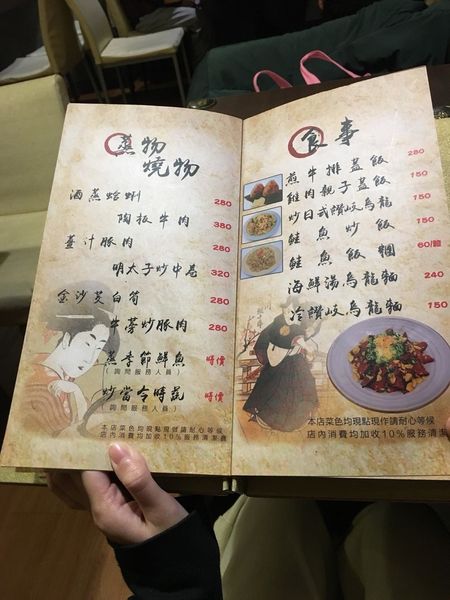 蒸物
燒物
酒蒸蛤蜊 280
陶板牛肉 380
薑汁豚肉 280
明太子炒中卷 320
金沙茭白筍 280
牛蒡炒豚肉 280
蒸季節鮮魚 時價
(詢問服務人員)
炒當令時蔬 時價
(詢問服務人員)
本店菜色均現點現做請耐心等候
店內消費均加收10%服務清潔費
食事
煎牛排蓋飯 280
雞肉親子蓋飯 150
炒日式讚岐烏龍 150
鮭魚炒飯 150
鮭魚飯糰 60/顆
海鮮湯烏龍麵 240
冷讚岐烏龍麵 150
本店菜色均現點現作請耐心等候
店內消費均加收10%服務清潔